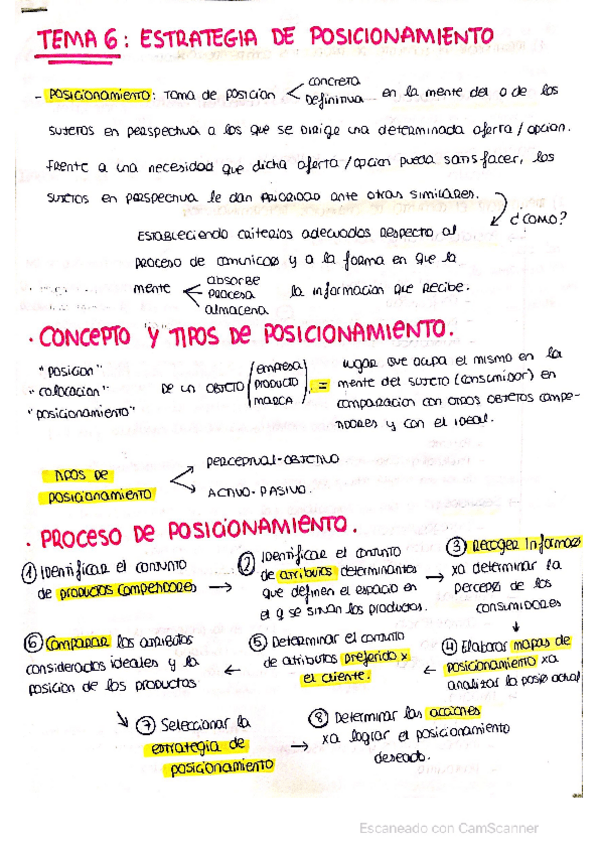 TEMA 6: ESTRATEGIA DE POSICIONAMIENTO
- POSICIONAMIENTO: Toma de posición concreta Definitiva en la mente del o de los
sujetos en perspectiva a los que se dirige una determinada oferta/opción.
Frente a una necesidad que dicha oferta/opción pueda satisfacer, los
sujetos en perspectiva le dan PRIORIDAD ante otras similares.
¿Cómo?
ESTABLECIENDO criterios adecuados respecto al
proceso de comunicar y a la forma en que la
mente absorbe procesa almacena la información que recibe.
· CONCEPTO "Y" TIPOS DE POSICIONAMIENTO.
"posición"
"colocación"
"posicionamiento"
DE UN OBJETO (empresa PRODUCTO MARCA) =
lugar que ocupa el mismo en la
mente del sujeto (consumidor) en
comparación con otros objetos compe-
tidores y con el ideal.
TIPOS DE
POSICIONAMIENTO
PERCEPTUAL-OBJETIVO
ACTIVO-PASIVO.
· PROCESO DE POSICIONAMIENTO.
① Identificar el conjunto
de productos competidores
② Identificar el conjunto
de atributos determinantes
que definen el espacio en
el q se sitúan los productos.
③ Recoger informac
xa determinar la
percepc de los
consumidores
④ Elaborar mapas de
posicionamiento xa
analizar la posic actual
⑤ Determinar el conjunto
de atributos preferido x
el cliente.
⑥ Comparar los atributos
considerados ideales y la
posición de los productos
⑦ Seleccionar la
estrategia de
posicionamiento
⑧ Determinar las acciones
xa lograr el posicionamiento
deseado.
Escaneado con CamScanner